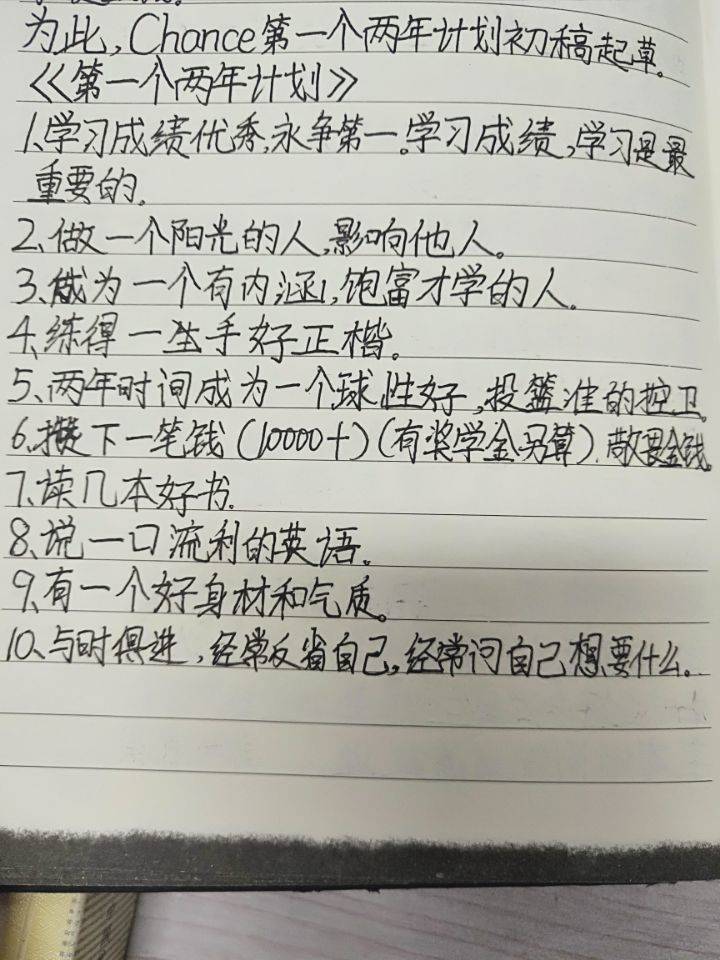 为此,Chance第一个两年计划初稿起草。
《第一个两年计划》
1、学习成绩优秀,永争第一。学习成绩,学习是最
重要的。
2、做一个阳光的人,影响他人。
3、成为一个有内涵,饱富才学的人。
4、练得一生手好正楷。
5、两年时间成为一个球性好,投篮准的控卫。
6、攒下一笔钱(10000+)(有奖学金另算).敬畏金钱。
7、读几本好书.
8、说一口流利的英语。
9、有一个好身材和气质。
10、与时俱进,经常反省自己,经常问自己想要什么。